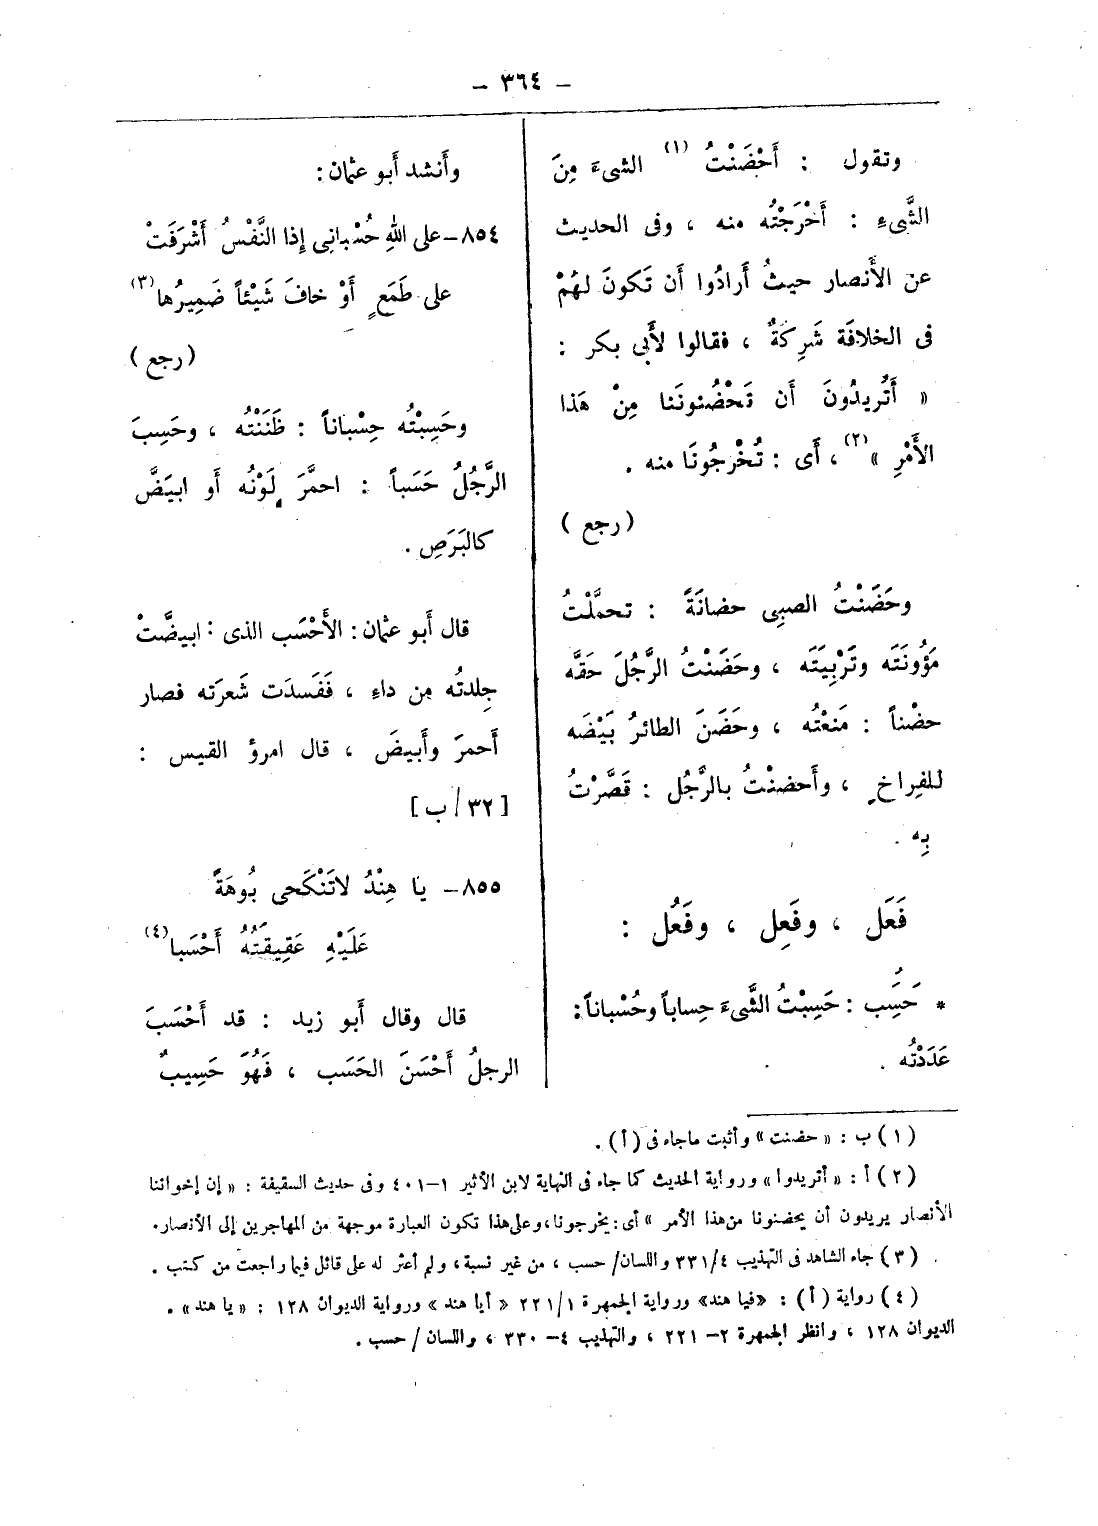 - ٣٦٤ -
وتقول : أَحْضَنْتُ (١) الشىءَ مِنَ
الشَّىءِ : أَخْرَجْتُه منه ، وفى الحديث
عن الأَنصار حيثُ أَرادُوا أَن تَكونَ لهُمْ
فى الخلافَة شَرِكَةٌ ، فقالوا لأَبى بكر :
« أَتُريدُونَ أَن تَحْضُنونَنا مِنْ هَذا
الأَمْرِ » (٢) ، أَى : تُخْرِجُونَا منه .
( رجع )
وحَضَنْتُ الصبِى حضانَةً : تحمَّلْتُ
مَؤُونَتَه وتَرْبِيَتَه ، وحَضَنْتُ الرَّجُلَ حَقَّه
حضْناً : مَنعْتُه ، وحَضَنَ الطائرُ بَيْضَه
للفِراخِ ، وأَحضنْتُ بالرَّجُل : قَصَّرْتُ
بِه .
فَعَل ، وفَعِل ، وفَعُل :
* حَسَُِب : حَسِبْتُ الشَّىءَ حِساباً وحُسْباناً :
عَدَدْتُه .
وأَنشد أَبو عثمان :
٨٥٤ – على اللهِ حُسْبانِى إِذا النَّفْسُ أَشْرَفَتْ
على طَمَعٍ أَوْ خافَ شَيْئاً ضَمِيرُها (٣)
( رجع )
وحَسِبْتُه حِسْباناً : ظَنَنْتُه ، وحَسِبَ
الرَّجُلُ حَسَباً : احمَّرَ لَوْنُه أَو ابيَضَّ
كالبَرَصِ .
قال أَبو عثمان : الأَحْسَب الذى : ابيضَّتْ
جِلدتُه مِن داءِ ، فَفَسدَت شَعرَته فصار
أَحمرَ وأَبيضَ ، قال امرؤ القيس :
[ ٣٢ / ب ]
٨٥٥ – يا هِنْدُ لاتَنْكَحى بُوهَةً
عَلَيْهِ عَقِيقَتُهُ أَحْسَبا (٤)
قال وقال أَبو زيد : قد أَحْسَبَ
الرجلُ أَحْسَنَ الحَسَب ، فَهُوَ حَسِيبٌ
(١) ب : « حضنت » وأثبت ماجاء فى (أ) .
(٢) أ : « أتريدوا » ورواية الحديث كما جاء فى النهاية لابن الأثير ١–٤٠١ وفى حديث السقيفة : « إن إخواننا
الأنصار يريدون أن يحضنونا من هذا الأمر » أى : يخرجونا ، وعلى هذا تكون العبارة موجهة من المهاجرين إلى الأنصار .
(٣) جاء الشاهد فى التهذيب ٤/٣٣١ واللسان/ حسب ، من غير نسبة ، ولم أعثر له على قائل فيما راجعت من كتب .
(٤) رواية (أ) : «فيا هند» ورواية الجمهرة ١/٢٢١ « أيا هند » ورواية الديوان ١٢٨ : « يا هند » .
الديوان ١٢٨ ، وانظر الجمهرة ٢– ٢٢١ ، والتهذيب ٤– ٣٣٠ ، واللسان / حسب .